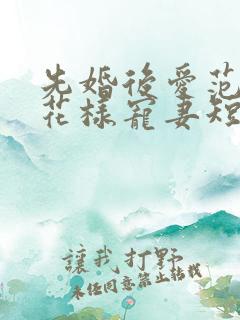 先婚後愛范
花樣寵妻短
讓我打野
未經同意禁止轉載